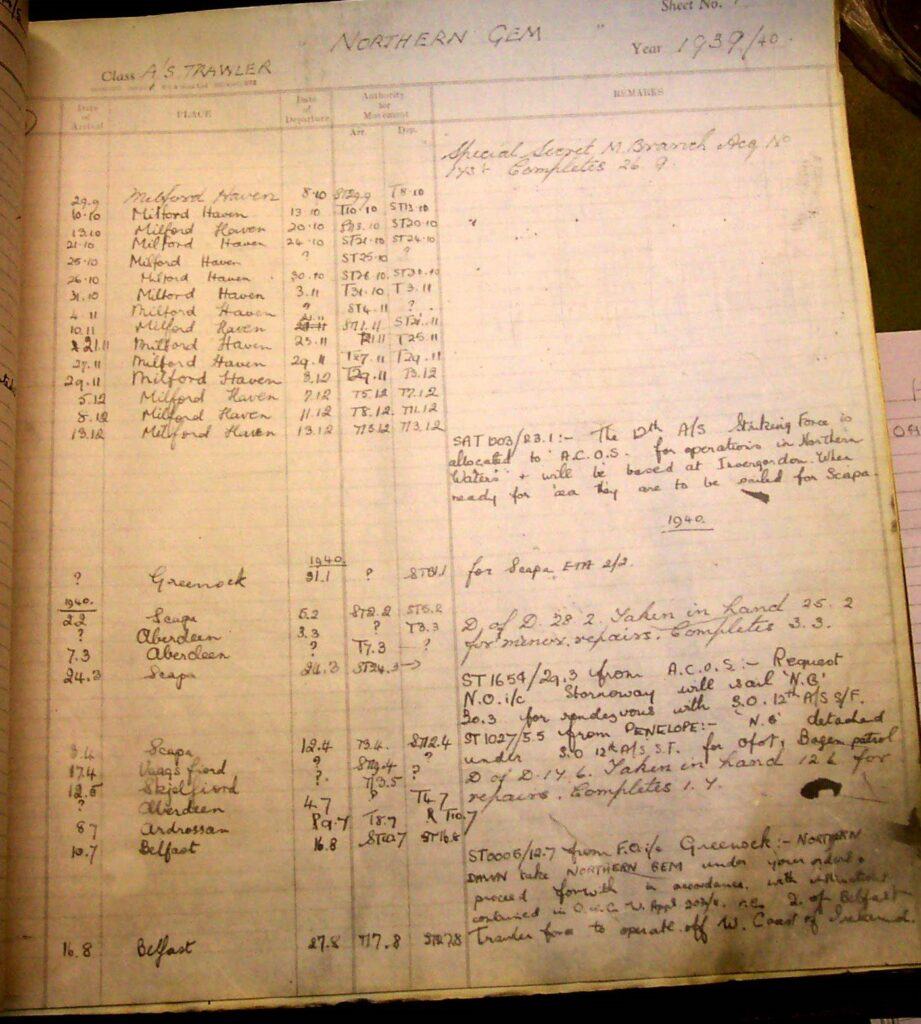 Sheet No.
" NORTHERN GEM "
Year 1939/40.
Class A/S TRAWLER
Date of Arrival PLACE Date of Departure Authority for Movement Arr. Dep. REMARKS
Special Secret M. Branch Acq No
Completes 26.9.
29.9 Milford Haven 8.10 ST29.9 T8.10
10.10 Milford Haven 13.10 T10.10 ST13.10
13.10 Milford Haven 20.10 ST20.10
21.10 Milford Haven 24.10 ST21.10 ST24.10
25.10 Milford Haven ? ST25.10 ?
26.10 Milford Haven 30.10 ST26.10 ST30.10
31.10 Milford Haven 3.11 T31.10 T3.11
4.11 Milford Haven ? ST4.11 ?
10.11 Milford Haven 21.11 ST21.11
21.11 Milford Haven 25.11 T25.11
27.11 Milford Haven 29.11 T27.11 T29.11
29.11 Milford Haven 3.12 T29.11 T3.12
5.12 Milford Haven 7.12 T5.12 T7.12
8.12 Milford Haven 11.12 T8.12 T11.12
13.12 Milford Haven 13.12 T13.12 T13.12
SAT 1203/23.1:- The 12th A/S Striking Force is
allocated to A.C.O.S. for operations in Northern
Waters & will be based at Invergordon. When
ready for sea they are to be sailed for Scapa.
1940.
1940.
? Greenock 31.1 ? ST31.1 for Scapa ETA 2/2.
1940.
2.2 Scapa 5.2 ST2.2 ST5.2
? Aberdeen 3.3 ? T3.3 D of D. 28.2. Taken in hand 25.2
7.3 Aberdeen ? T7.3 ? for minor repairs. Completes 3.3.
24.3 Scapa 24.3 ST24.3
ST 1654/29.3 from A.C.O.S:- Request
N.O. i/c Stornoway will sail 'N.G'
30.3 for rendezvous with S.O. 12th A/S S/F.
3.4 Scapa 12.4 T3.4. ST12.4 ST1027/5.5 from PENELOPE:- 'N.G' detached
17.4 Vaags fiord ? ? under S.O 12th A/S S.F. for Ofot, Bogen patrol
12.5 Skjelfiord ? T13.5 ? D of D. 14.6. Taken in hand 12.6 for
? Aberdeen 4.7 ? T4.7 repairs. Completes 1.7.
8.7 Ardrossan 9.7 T8.7 T10.7
10.7 Belfast 16.8 ST16.8
ST0006/12.7 from F.O. i/c Greenock:- NORTHERN
DAWN take NORTHERN GEM under your orders &
proceed forthwith in accordance with instructions
contained in of Belfast
16.8 Belfast 27.8 T17.8 ST27.8 Trawler force to operate off W. Coast of Ireland.